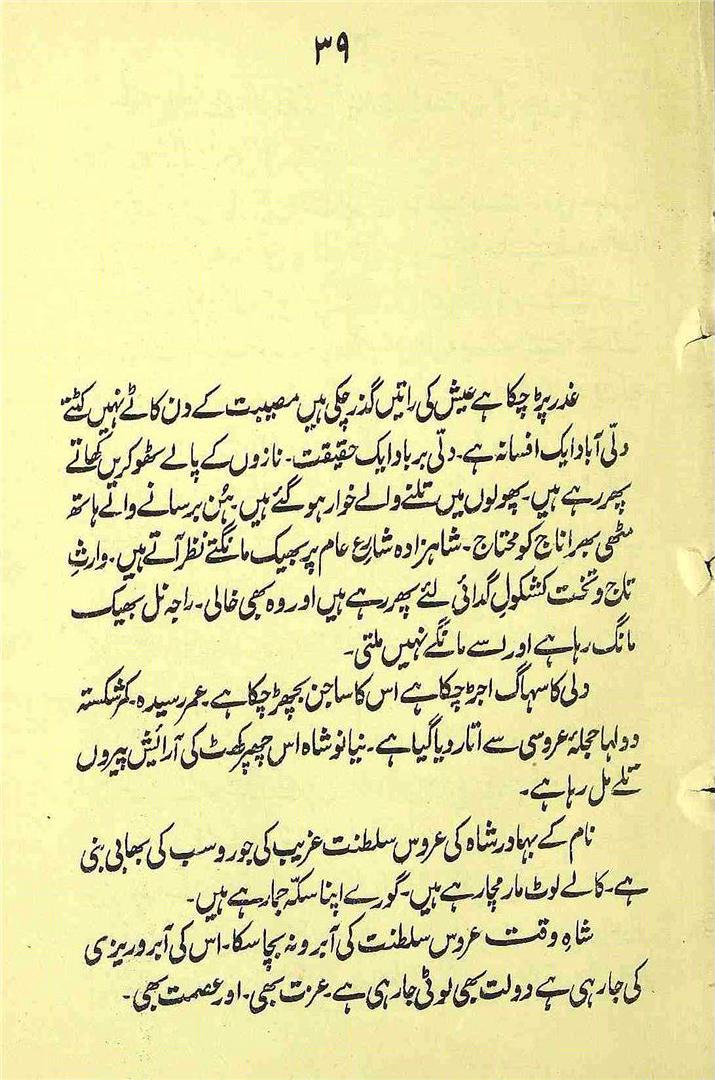 ۳۹
غدر پڑ چکا ہے عیش کی راتیں گذر چکی ہیں مصیبت کے دن کاٹے نہیں کٹتے
دلّی آباد ایک افسانہ ہے۔ دلّی برباد ایک حقیقت۔ نازوں کے پالے ٹھوکریں کھاتے
پھر رہے ہیں۔ پھولوں میں تلنے والے خوار ہو گئے ہیں۔ ہُن برسانے والے ہاتھ
مٹھی بھر اناج کو محتاج۔ شاہزادہ شارعِ عام پر بھیک مانگتے نظر آتے ہیں۔ وارثِ
تاج و تخت کشکولِ گدائی لئے پھر رہے ہیں اور وہ بھی خالی۔ راجہ نل بھیک
مانگ رہا ہے اور اسے مانگے نہیں ملتی۔
دلی کا سہاگ اجڑ چکا ہے اس کا ساجن بچھڑ چکا ہے۔ عمر رسیدہ۔ کمر شکستہ
دولہا حجلۂ عروسی سے اتار دیا گیا ہے۔ نیا نوشاہ اس چھپر کھٹ کی آرائش پیروں
تلے مل رہا ہے۔
نام کے بہادر شاہ کی عروس سلطنت غریب کی جورو سب کی بھابی بنی
ہے۔ کالے لوٹ مار مچا رہے ہیں۔ گورے اپنا سکّہ جما رہے ہیں۔
شاہِ وقت عروس سلطنت کی آبرو نہ بچا سکا۔ اس کی آبرو ریزی
کی جا رہی ہے دولت بھی لوٹی جا رہی ہے۔ عزت بھی۔ اور عصمت بھی۔